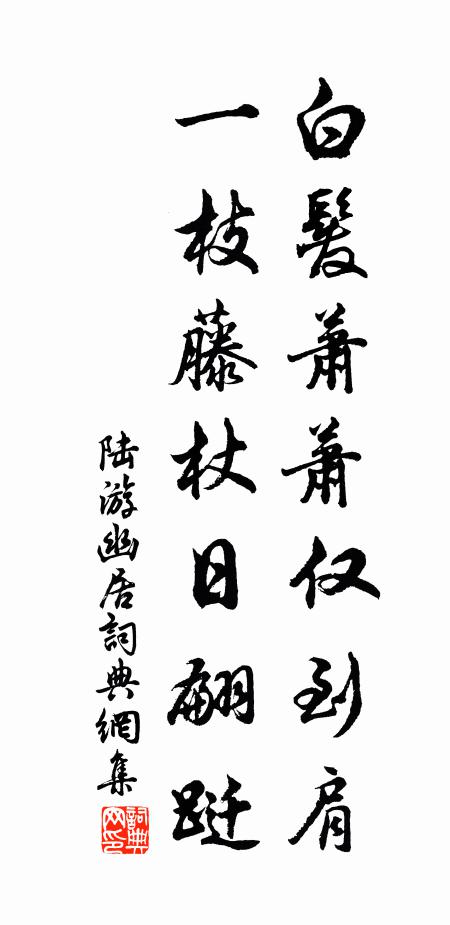 白髮蕭蕭仅到肩
一枝藤杖日翩跹
陆游幽居詞典網集
詞典网印